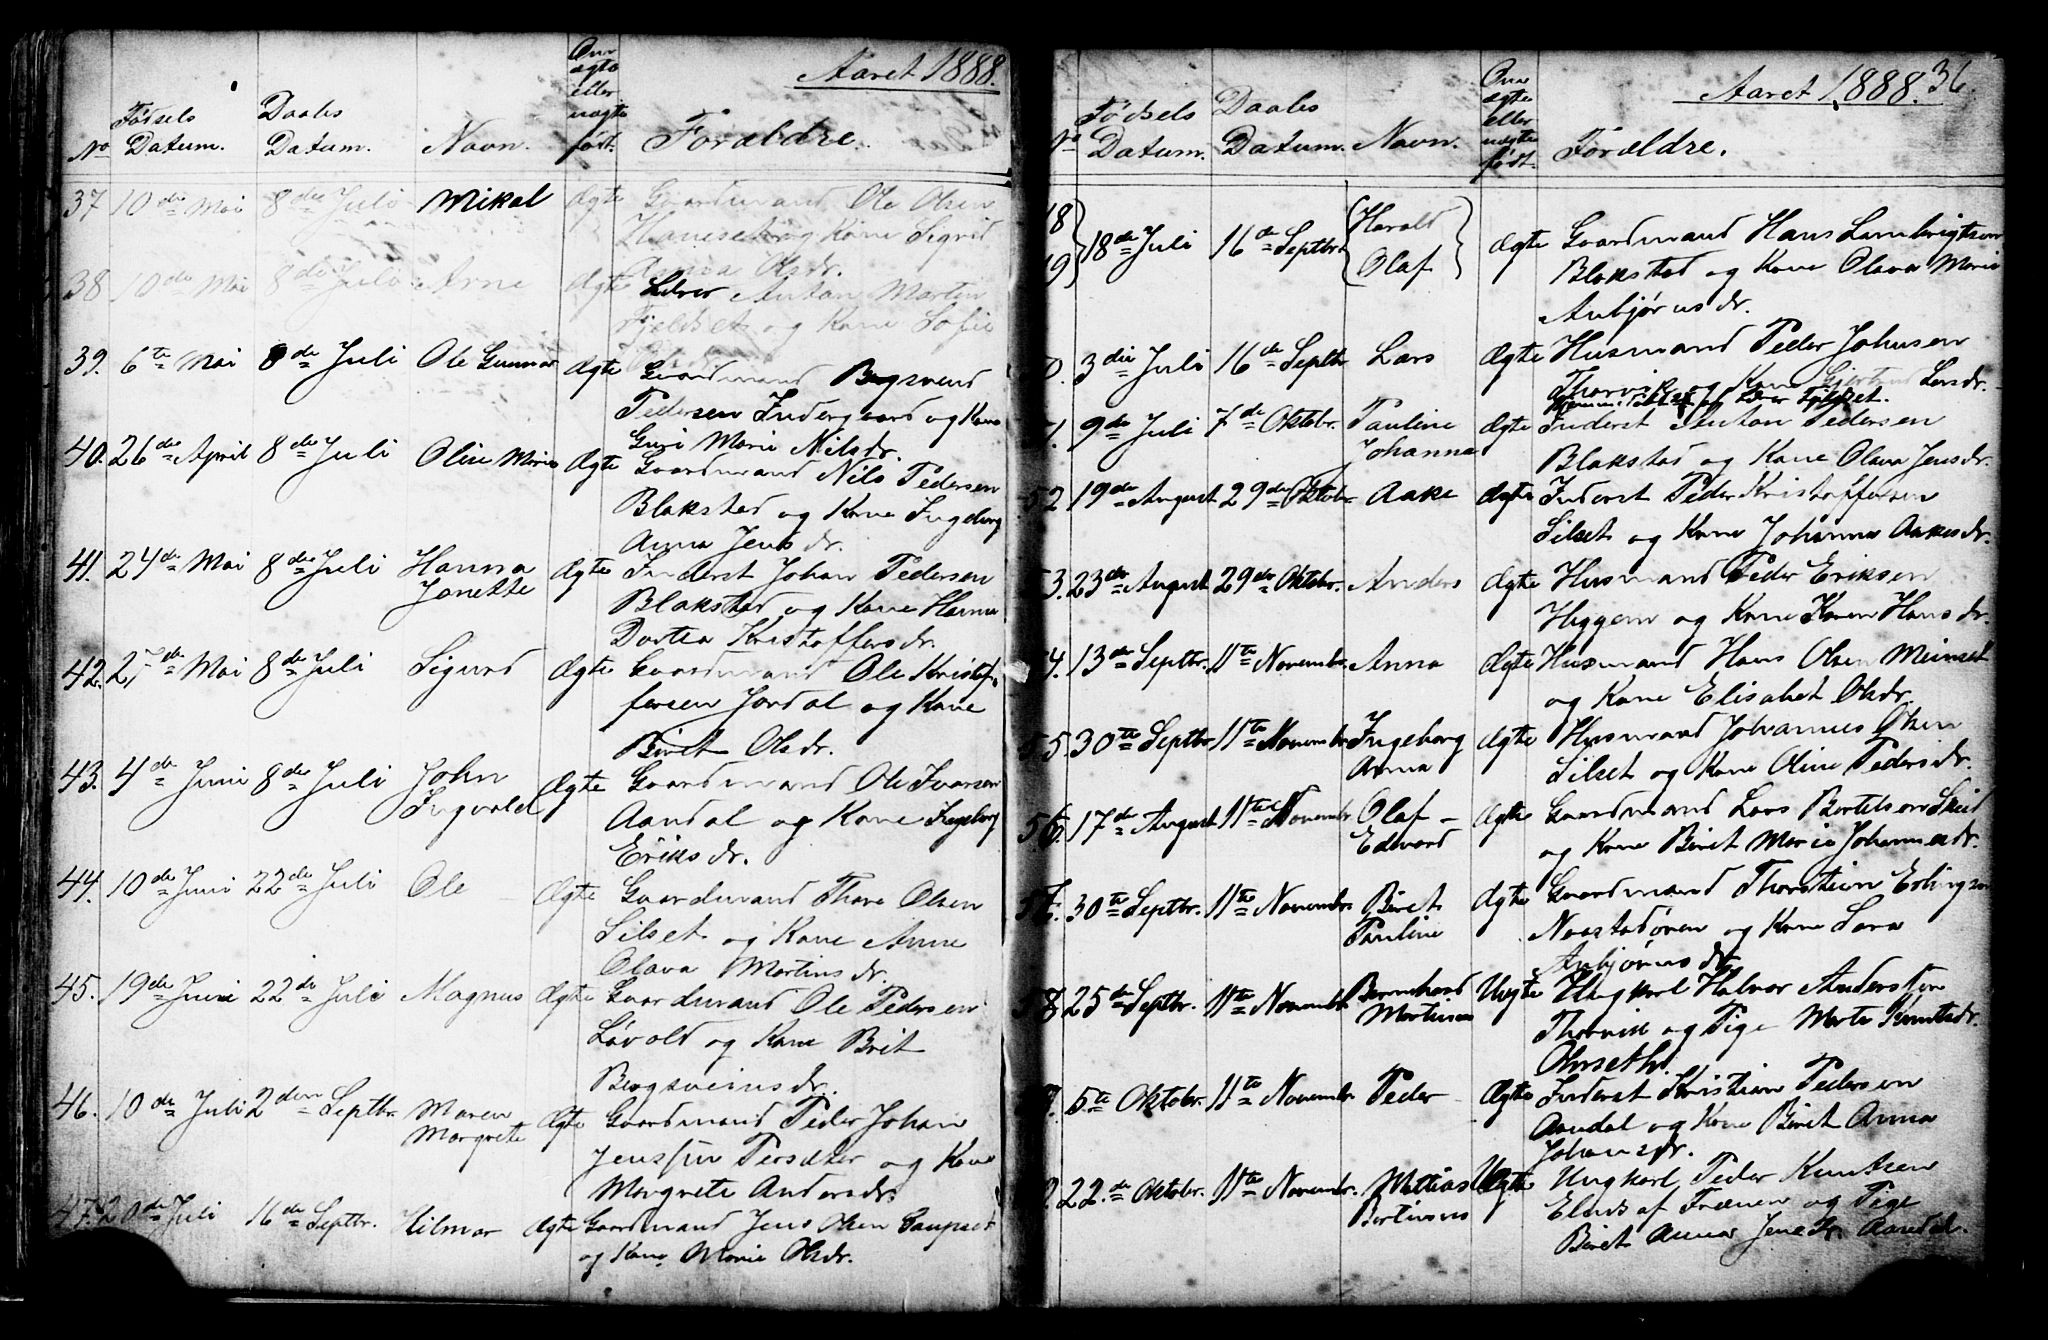 Aaret 1888.
No
Fødsels Datum.
Daabs Datum.
Navn.
Om ægte eller uægte født.
Forældre.
37 10de Mai 8de Juli Mikal Ægte Gaardmand Ole Olsen
Hanset og Kone Sigrid
Anna Olsdr.
38 10de Mai 8de Juli Arne Ægte Lærer Anton Martin
Fjeldset og Kone Sofie
39. 6te Mai 8de Juli Ole Gunnar Ægte Gaardmand Bergsvend
Pedersen Indergaard og Kone
Guri Marie Nilsdr.
40. 26de April 8de Juli Oline Marie Ægte Gaardmand Nils Pedersen
Blakstad og Kone Ingeborg
Anna Jensdr.
41. 24de Mai 8de Juli Hanna Ægte Inderst Johan Pedersen
Janette Blakstad og Kone Hanna
Dortea Kristoffersdr.
42. 27de Mai 8de Juli Sigurd Ægte Gaardmand Ole Kristof
fersen Jordal og Kone
Beret Olsdr.
43. 4de Juni 8de Juli John Ægte Gaardmand Ole Iversen
Ingvald Aandal og Kone Ingeborg
Eriksdr.
44. 10de Juni 22de Juli Ole Ægte Gaardmand Thore Olsen
Silset og Kone Anne
Olava Martinsdr.
45. 19de Juni 22de Juli Magnus Ægte Gaardmand Ole Pedersen
Løvold og Kone Brit
Bergsveinsdr.
46. 10de Juli 2den Septbr. Maren Ægte Gaardmand Peder Johan
Margrete Jensen Persæter og Kone
Margrete Andersdr.
47. 20de Juli 16de Septbr. Hilmar Ægte Gaardmand Jens Olsen Gaupset
og Kone Marie Olsdr.
Aaret 1888. 36.
No
Fødsels Datum.
Daabs Datum.
Navn.
Om ægte eller uægte født.
Forældre.
18 19 18de Juli 16de Septbr. Harald Olaf Ægte Gaardmand Hans Lambrigtsen
Blakstad og Kone Olava Marie
Anbjørnsdr.
0. 3die Juli 16de Septbr Lars Ægte Husmand Peder Johnsen
Thorvik og Kone Gjertrud Larsdr.
1. 9de Juli 7de Oktobr. Pauline Ægte Inderst Anton Pedersen
Johanna Blakstad og Kone Olava Jensdr.
52 19de August 29de Oktobr Aake Ægte Inderst Peder Kristoffersen
Silset og Kone Johanna Aakesdr.
53. 23de August 29de Oktobr. Anders Ægte Husmand Peder Eriksen
Heggem og Kone Karen Hansdr.
4. 13de Septbr. 11te Novembr. Anna Ægte Husmand Hans Olsen Meinset
og Kone Elisabet Olsdr.
55. 30te Septbr 11te Novembr Ingeborg Ægte Husmand Johannes Olsen
Anna Silset og Kone Oline Pedersdr.
56. 17de August 11te Novembr. Olaf Ægte Gaardmand Lars Bertelsen Skeid
Edvard og Kone Beret Marie Johannesdr.
57. 30te Septbr. 11te Novembr. Beret Ægte Gaardmand Thorstein Erlingsen
Pauline Naastadøren og Kone Sara
Anbjørnsdr
58. 25de Septbr. 11te Novembr Bernhard Uægte Ungkarl Halvor Andersen
Martinus Thorvik og Pige Marte Knutsdr.
Olnseth.
9. 5te Oktobr. 11te Novembr. Peder Ægte Inderst Kristian Pedersen
Aandal og Kone Beret Anna
Johansdr.
22de Oktobr. 11te Novembr. Matias Uægte Ungkarl Peder Knutsen
Bertinus Elnes af Frænen og Pige
Beret Anna Jensdr. Aandal.